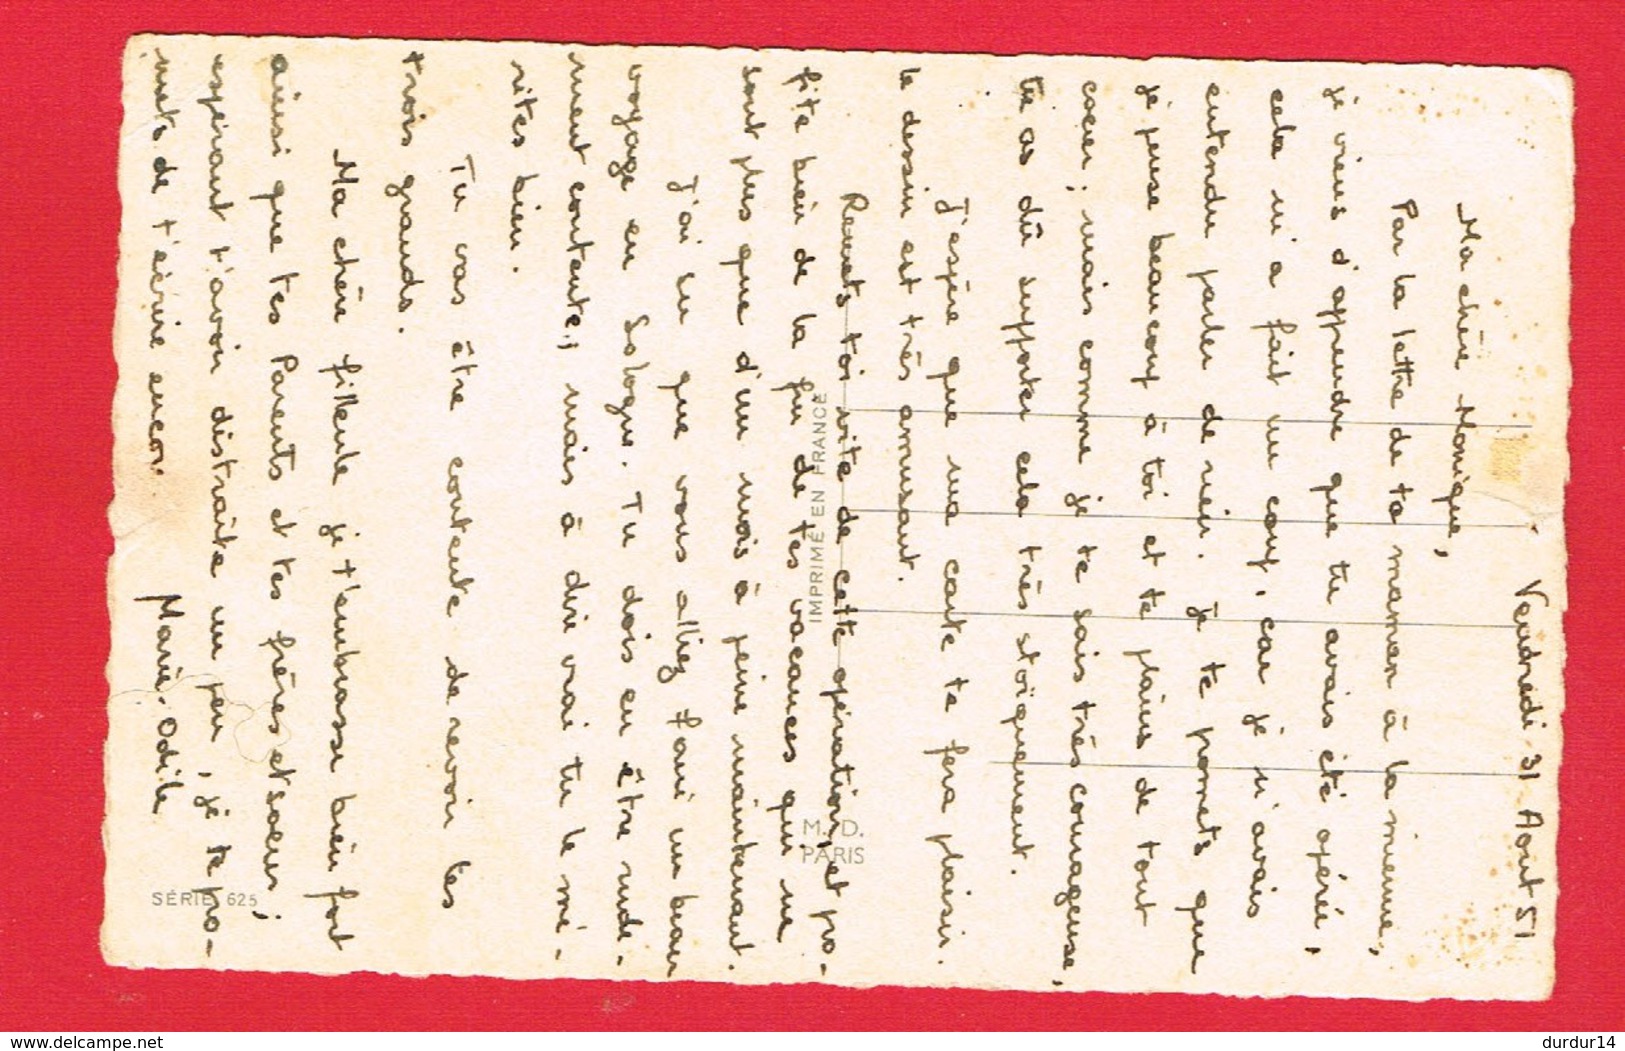 Vendredi 31 Aout 51
Ma chère Monique,
Par la lettre de ta maman à la mienne,
je viens d'apprendre que tu avais été opérée,
cela m'a fait un coup, car je n'avais
entendu parler de rien. Je te promets que
je pense beaucoup à toi et te plains de tout
cœur ; mais comme je te sais très courageuse,
tu as dû supporter cela très stoïquement.
J'espère que ma carte te fera plaisir.
le dessin est très amusant.
Remets toi vite de cette opération, et pro-
fite bien de la fin de tes vacances qui ne
sont plus que d'un mois à peine maintenant.
J'ai su que vous alliez faire un beau
voyage en Sologne. Tu dois en être rude-
ment contente ; mais à dire vrai tu le mé-
rites bien.
Tu vas être contente de revoir les
trois grands.
Ma chère filleule je t'embrasse bien fort
ainsi que tes Parents et tes frères et sœurs ;
espérant t'avoir distraite un peu, je te pro-
mets de t'écrire encore.
Marie-Odile
IMPRIMÉ EN FRANCE
M. D.
PARIS
SÉRIE 625
delcampe.net
durdur14